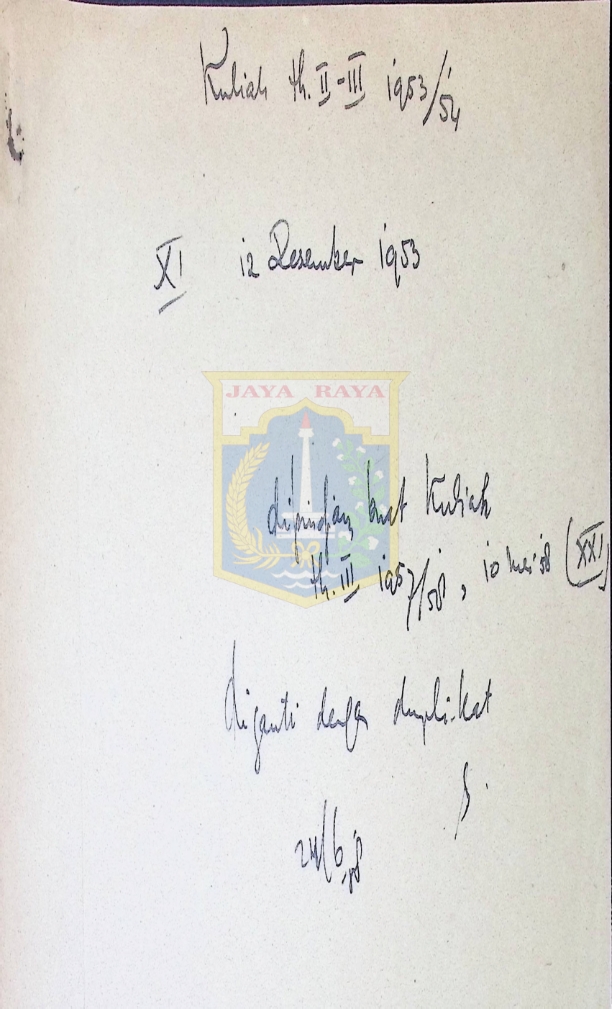 Kuliah th. II-III 1953/'54
XI 12 Desember 1953
JAYA RAYA
dipindjam buat Kuliah
th. III 1957/'58, 10 Mei '58 (XXI)
diganti dengan dupli-kat
24/6 '58